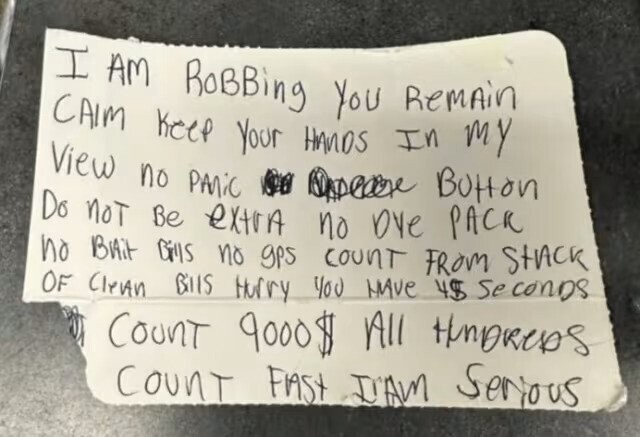 I AM ROBBing YOU REMAIN
CAIM KEEP YOUR HANDS IN MY
View no PANiC BUTTON
DO NOT BE EXTRA NO DYE PACK
NO BAIT Bills NO gps COUNT FROM STACK
OF CleAN Bills Hurry YOU HAVE 45 SeCONDS
COUNT 9000$ All HUNDREDS
COUNT FAST I'AM Serious